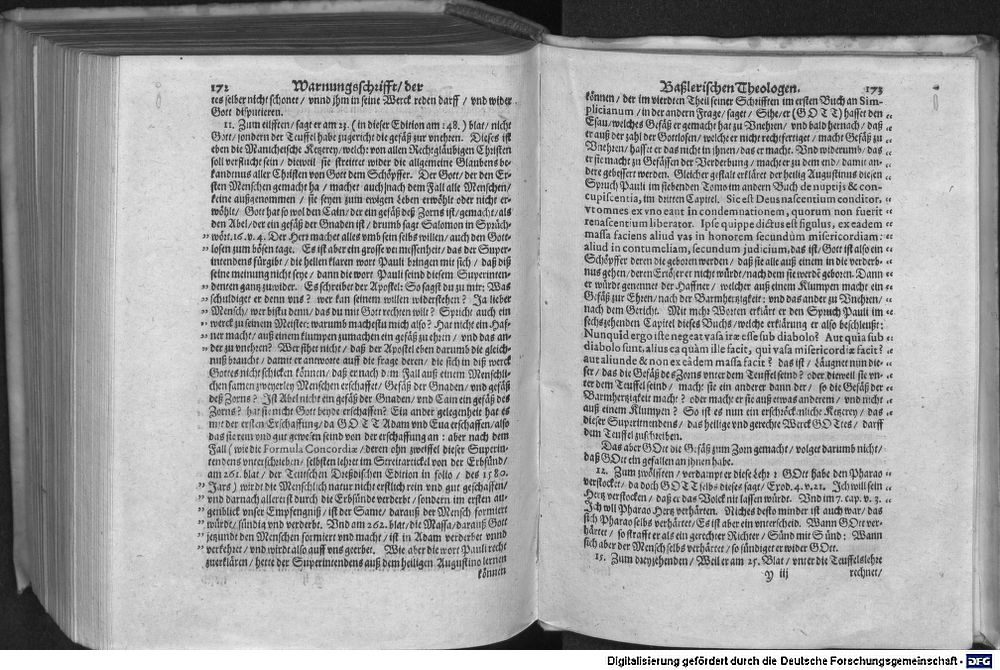 172 Warnungsschrifft/ der
tes selber nicht schonet / vnnd jhm in seine Werck reden darff / vnd wider
Gott disputieren.
11. Zum eilfften/ sagt er am 23. (in dieser Edition am 148.) blat/ nicht
Gott/ sondern der Teuffel habe zugericht die gefäß zur vnehren. Dieses ist
eben die Manicheische Ketzerey/ welche von allen Rechtgläubigen Christen
soll verflucht sein / dieweil sie streittet wider die allgemeine Glaubens be-
kandtnus aller Christen von Gott dem Schöpffer. Der Gott/ der den Er-
sten Menschen gemacht hat / machet auch nach dem Fall alle Menschen/
keine außgenommen / sie seyen zum ewigen Leben erwöhlt oder nicht er-
wöhlt / Gott hat so wol den Cain/ der ein gefäß deß Zorns ist/ gemacht/ als
den Abel/ der ein gefäß der Gnaden ist / drumb sagt Salomon in Sprüch-
wört. 16. v. 4. Der Herr machet alles vmb sein selbs willen/ auch den Gott-
losen zum bösen tage. Es ist aber ein grosse vermessenheit / das der Super-
intendens fürgibt / die hellen klaren wort Pauli bringen mit sich / daß diß
seine meinung nicht seye / dann die wort Pauli seind diesem Superinten-
denten gantz zu wider. Es schreibet der Apostel: So sagst du zu mir: Was
schuldiget er denn vns ? wer kan seinem willen widerstehen ? Ja lieber
Mensch/ wer bistu denn / das du mit Gott rechten wilt ? Spricht auch ein
werck zu seinem Meister: warumb machestu mich also ? Hat nicht ein Haf-
ner macht/ auß einem klumpen zumachen ein gefäß zu ehren / vnd das an-
der zu vnehren ? Wer sihet nicht / daß der Apostel eben darumb die gleich-
nuß braucht / damit er antworte auff die frage deren / die sich in diß werck
Gottes nicht schicken können/ daß er nach dem Fall auß einem Menschli-
chen samen zweyerley Menschen erschaffet / Gefäß der Gnaden/ vnd gefäß
deß Zorns ? Ist Abel nicht ein gefäß der Gnaden/ vnd Cain ein gefäß des
Zorns ? hat sie nicht Gott beyde erschaffen? Ein ander gelegenheit hat es
mit der ersten Erschaffung/ da GOTT Adam vnd Eua erschaffen/ also
das sie rein vnd gut gewesen seind von der erschaffung an : aber nach dem
Fall ( wie die Formula Concordiæ / deren ohn zweiffel dieser Superin-
tendens vnterschrieben/ selbsten lehret im Streitartickel von der Erbsünd/
am 261. blat / der Teutschen Dreßdischen Edition in folio / des 1580.
Jars ) wirdt die Menschlich natur nicht erstlich rein vnd gut geschaffen/
vnd darnach allererst durch die Erbsünde verderbt / sondern im ersten au-
genblick vnser Empfengniß / ist der Same/ darauß der Mensch formiert
würdt/ sündig vnd verderbt. Vnd am 262. blat/ die Massa/ darauß Gott
jetzunde den Menschen formiert vnd macht / ist in Adam verderbet vnnd
verkehret / vnd wirdt also auff vns geerbet. Wie aber die wort Pauli recht
zuerklären / hette der Superintendens auß dem heiligen Augustino lernen
können
Baßlerischen Theologen. 173
können / der im vierdten Theil seiner Schrifften im ersten Buch an Sim-
plicianum / in der andern Frage / saget / Sihe/ er (GOTT) hasset den
Esau/ welches Gefäß er gemacht hat zu Vnehren / vnd bald hernach / daß
er auß der zahl der Gottlosen/ welche er nicht rechtfertiget / macht Gefäß zu
Vnehren/ hasset er das nicht in jhnen/ das er macht. Vnd widerumb/ das
er sie macht zu Gefässen der Verderbung / macht er zu dem end/ damit an-
dere gebessert werden. Gleicher gestalt erkläret der heilig Augustinus diesen
Spruch Pauli im siebenden Tomo im andern Buch de nuptijs & con-
cupiscentia, im dritten Capitel. Sic est Deus nascentium conditor,
vt omnes ex vno eant in condemnationem, quorum non fuerit
renascentium liberator. Ipse quippe dictus est figulus, ex eadem
massa faciens aliud vas in honorem secundùm misericordiam :
aliud in contumeliam, secundum judicium, das ist / Gott ist also ein
Schöpffer deren die geboren werden / daß sie alle auß einem in die verderb-
nus gehen/ deren Erlöser er nicht würde/ nach dem sie werdē geboren. Dann
er würde genennet der Haffner / welcher auß einem Klumpen macht ein
Gefäß zur Ehren/ nach der Barmhertzigkeit: vnd das ander zu Vnehren/
nach dem Gericht. Mit mehr Worten erklärt er den Spruch Pauli im
sechszehenden Capitel dieses Buchs/ welche erklärung er also beschleußt:
Nunquid ergo iste negat vasa iræ esse sub diabolo? Aut quia sub
diabolo sunt, alius ea quàm ille facit, qui vasa misericordiæ facit?
aut aliunde & non ex eadem massa facit ? das ist / Läugnet nun die-
ser / das die Gefäß des Zorns vnter dem Teuffel seind? oder dieweil sie vn-
ter dem Teuffel seind / macht sie ein anderer dann der / so die Gefäß der
Barmhertzigkeit macht ? oder macht er sie auß etwas anderem / vnd nicht
auß einem Klumpen? So ist es nun ein erschröckenliche Ketzerey / das
dieser Superintendens / das heilige vnd gerechte Werck GOttes / darff
dem Teuffel zuschreiben.
Das aber GOtt die Gefäß zum Zorn gemacht / volget darumb nicht/
daß GOtt ein gefallen an jhnen habe.
12. Zum zwölfften / verdampt er diese Lehr : GOtt habe den Pharao
verstocket/ da doch GOTT selbs dieses sagt / Exod. 4. v. 21. Ich will sein
Hertz verstocken / daß er das Volck nit lassen würdt. Vnd im 7. cap. v. 3.
Ich will Pharao Hertz verhärten. Nichts desto minder ist auch war/ das
sich Pharao selbs verhärtet/ Es ist aber ein vnterscheid. Wann GOtt ver-
härtet / so strafft er als ein gerechter Richter / Sünd mit Sünd: Wann
sich aber der Mensch selbs verhärtet / so sündiget er wider GOtt.
13. Zum dreyzehenden / Weil er am 25. Blat / vnter die Teuffelslehre
Y iij rechnet/
Digitalisierung gefördert durch die Deutsche Forschungsgemeinschaft - DFG